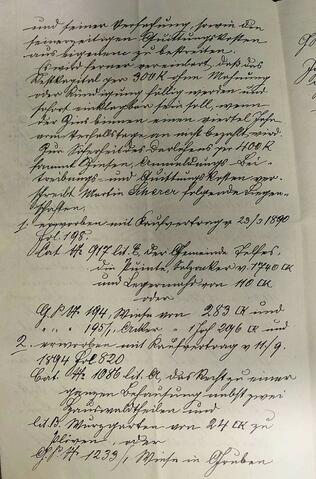 und seiner Verfachung, sowie die
seinerzeitigen Quittungskosten
aus eigenem zu bestreiten.
Es wird ferner vereinbart, dass das
Restkapital per 300 K ohne Mahnung
oder Kündigung fällig werden und
sofort einklagbar sein soll, wenn
der Zins binnen einem viertel Jahr
vom Verfallstage an nicht bezahlt wird.
Zur Sicherheit des Darlehens pr 400 K
sammt Zinsen, Anmeldungs- Bei-
treibungs- und Quittungskosten ver-
schreibt Martin Scherer folgende Liegen-
schaften.
1. erworben mit Kaufvertrag v 23/3 1890
Fol. 195.
Cat. № 917 lit. C, der Gemeinde Telfes,
die Puinte, v. 1740 CK
und Legermahd von 110 CK
oder
G.P. № 194, Wiese von 283 CK und
" " " 195/1, Acker " 1 Joh 296 CK und
2. erworben mit Kaufvertrag v 11/9.
1894 Fol 520
Cat. № 1086 lit. A, das Recht zu einer
ganzen Behausung nebst zwei
und
lit. B. Wurzgarten von 24 CK zu
Plöven, oder
G.P. № 1233/1, Wiese in Gruben